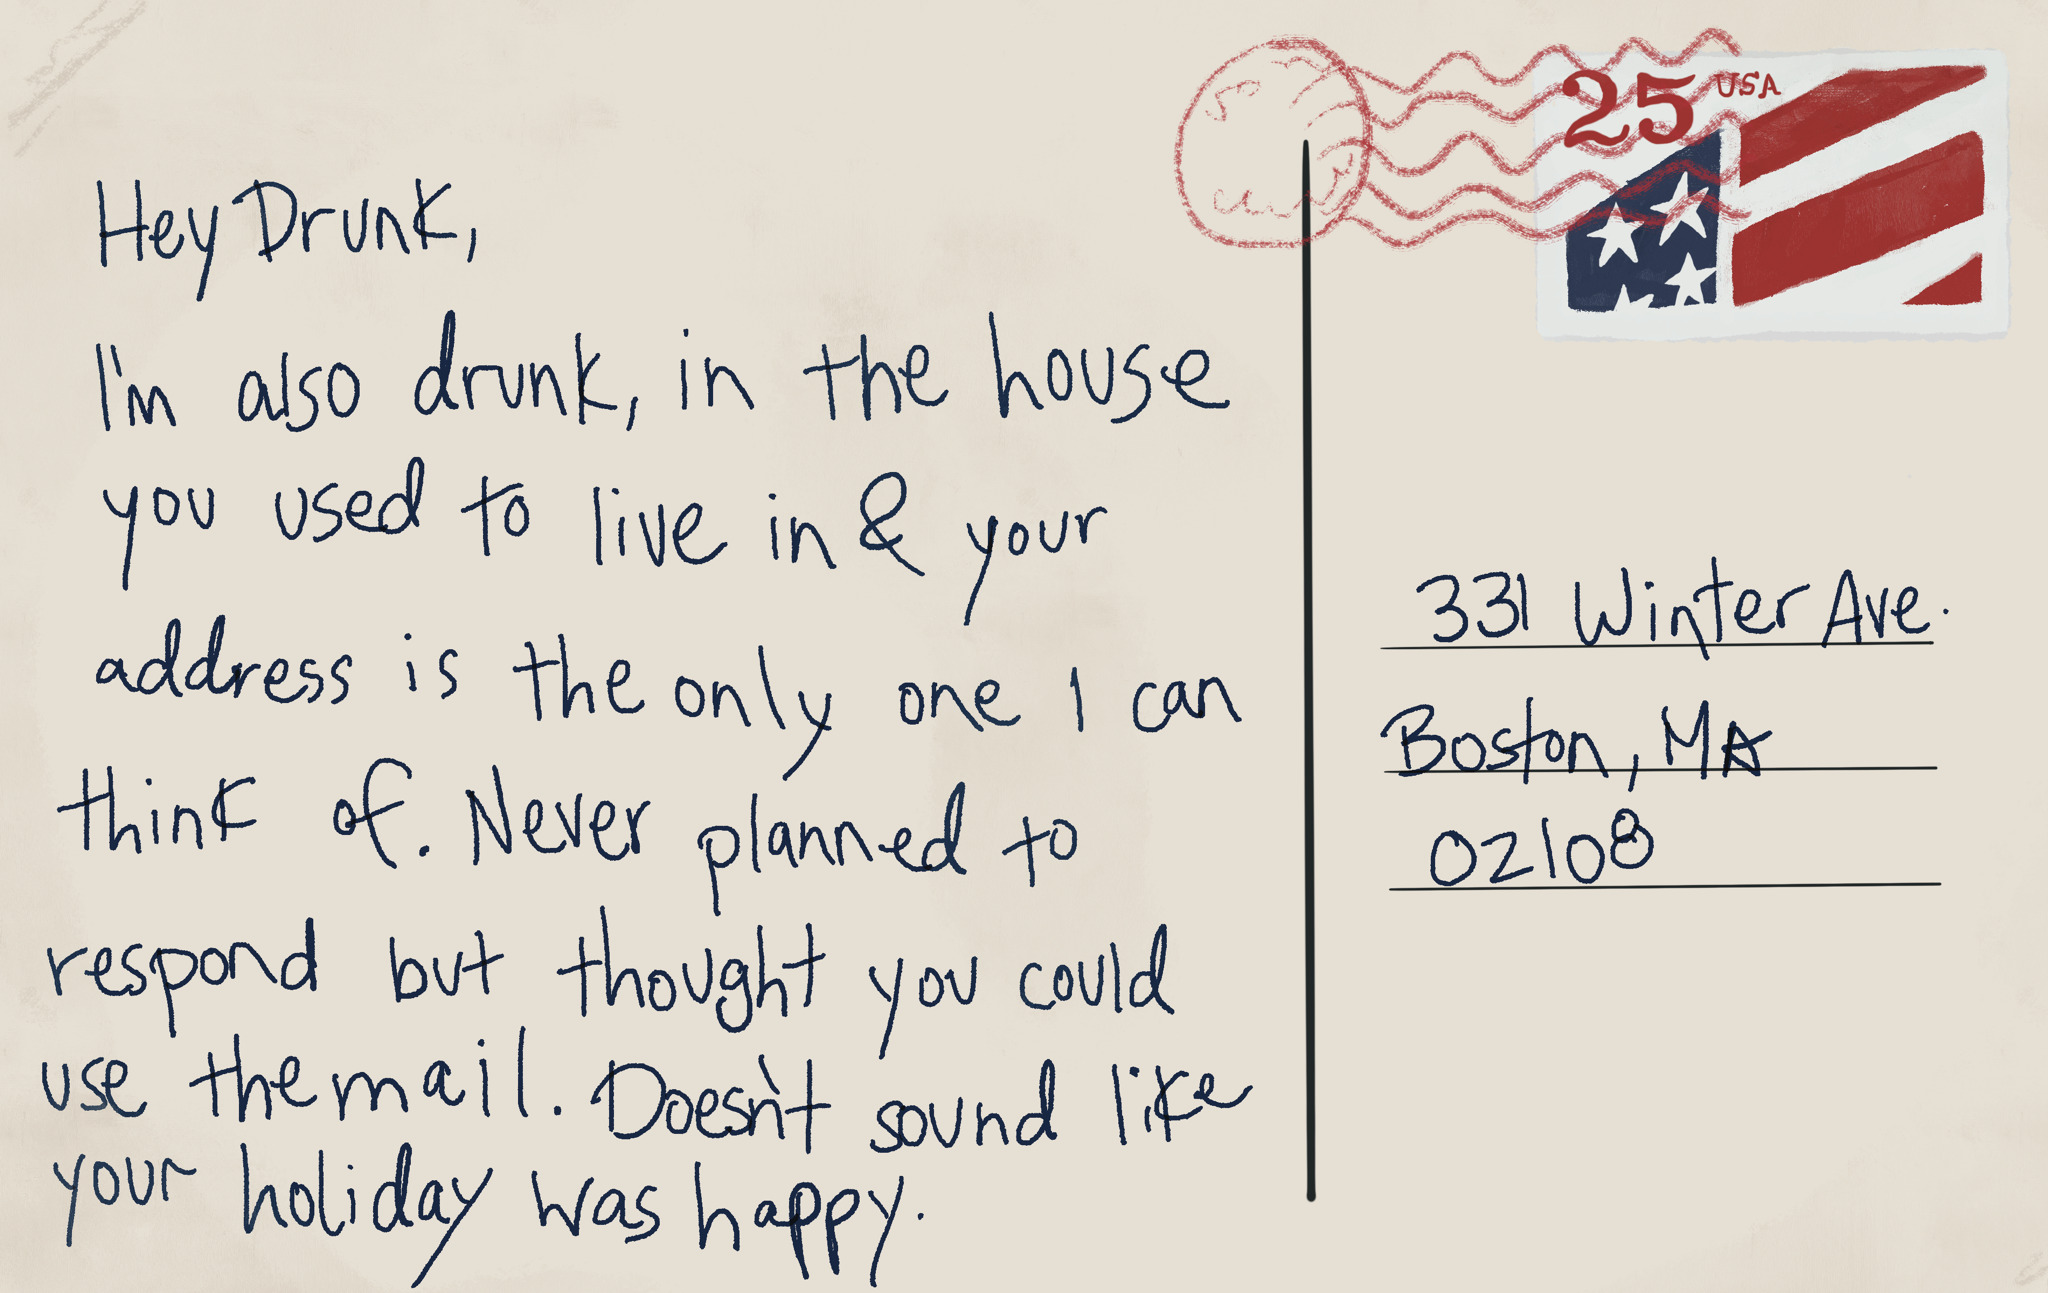 25 USA
Hey Drunk,
I'm also drunk, in the house
you used to live in & your
address is the only one I can
think of. Never planned to
respond but thought you could
use the mail. Doesn't sound like
your holiday was happy.
331 Winter Ave.
Boston, MA
02108